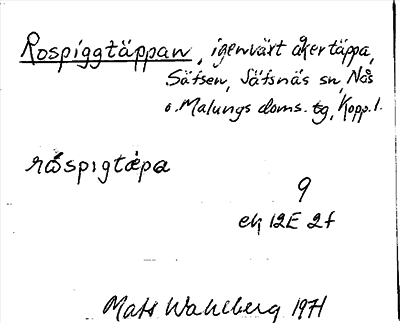 Rospiggtäppan, igenväxt åkertäppa,
Säfsen, Säfsnäs sn, Nås
o. Malungs doms. tg, Kopp. l.
råspigtæpa
9
ek 12E 2f
Mats Wahlberg 1971